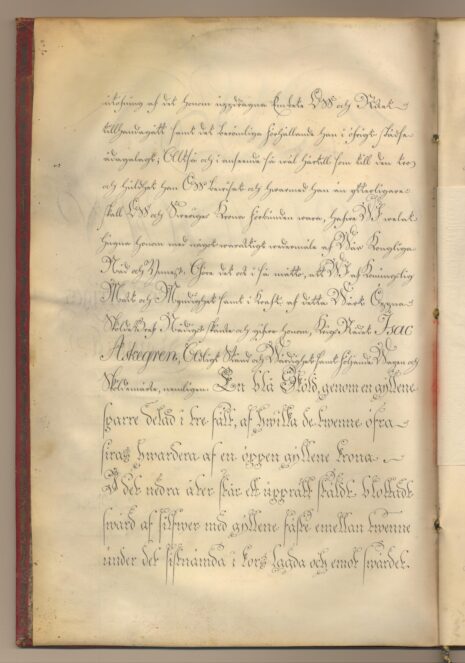 utösning af det honom updragna Embete Oss och Riket
tillhandagått samt det berömliga förhållande han i öfrigit städse
ådagalagt; Altså och i anseende så wäl härtill som till den tro
och huldhet han Oss bewisat och hwarmed han än ytterligare
skall Oss och Sweriges Krona förbunden wara, hafwe Wi welat
hugna honom med något warachtigt wedermäle af Wår Kongliga
Nåd och Ynnest; Göre det ock i så måtto, att Wi af Konungslig
Macht och Myndighet samt i kraft af detta Wårt Öppna
Sköldebref Nådigst skänke och gifwe honom, Krigs Rådet Isac
Askegren, Adeligt Stånd och Wärdighet samt följande Wapen och
Sköldemärke, nemligen: En blå Sköld, genom en gyllene
sparre delad i tre fält, af hwilka de twenne öfra
siras hwardera af en öppen gyllene krona
I det nedra åter står ett upprätt stäldt blottadt
swärd af silfwer med gyllene fäste emellan twenne
under det sistnämda i kors lagda och emot swärdet